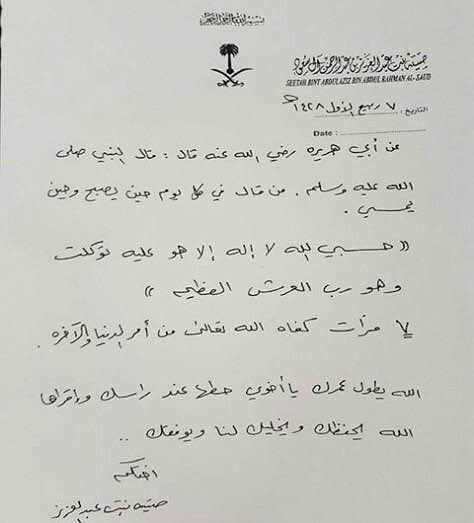 بسم الله الرحمن الرحيم
صيتة بنت عبدالعزيز بن عبدالرحمن آل سعود
SEETAH BINT ABDULAZIZ BIN ABDUL RAHMAN AL-SAUD
التاريخ : ٧ ربيع الأول ١٤٢٨هـ
Date :
عن أبي هريره رضي الله عنه قال : قال النبي صلى
الله عليه وسلم . من قال في كل يوم حين يصبح وحين
يمسي .
(( حسبي الله لا إله إلا هو عليه توكلت
وهو رب العرش العظيم ))
٧ مرات كفاه الله تعالى من أمر الدنيا والآخره .
الله يطول عمرك يا أخوي حطها عند راسك وإقراها
الله يحفظك ويخليك لنا ويوفقك ..
اختكم
صيته بنت عبدالعزيز